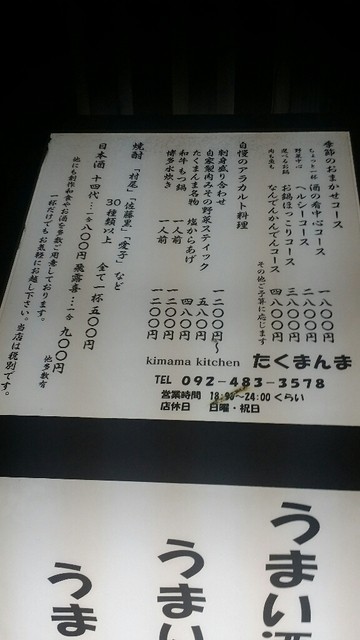 季節のおまかせコース
ちょっと一杯 酒の肴中心コース 一八〇〇円
野菜中心 ヘルシーコース 二八〇〇円
選べるお鍋 お鍋ほっこりコース 三八〇〇円
肉も魚も なんでんかんでんコース 四八〇〇円
その他ご予算に応じます
自慢のアラカルト料理
刺身盛り合わせ 一二〇〇円〜
自家製肉みその野菜スティック 五八〇円
たくまんま名物 塩からあげ 四八〇円
和牛もつ鍋 一人前 一二〇〇円
博多水炊き 一人前 一二〇〇円
焼酎 「村尾」「佐藤黒」「愛子」など
30種類以上 全て一杯五〇〇円
日本酒 十四代…一合 八〇〇円 飛露喜…一合 九〇〇円
他多数有
他にも創作和食やお酒を多数ご用意しております。
一杯だけでもお気軽にお越し下さい。当店は税別です。
kimama kitchen たくまんま
TEL 092-483-3578
営業時間 18:00〜24:00くらい
店休日 日曜・祝日
うまい酒
うまい
うま